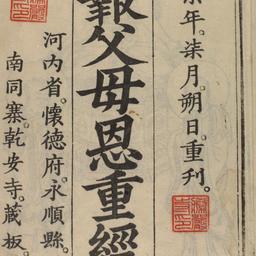 年柒月朔日重刊。
報父母恩重經
河内省懷德府永順縣。
南同寨乾安寺蔵板。